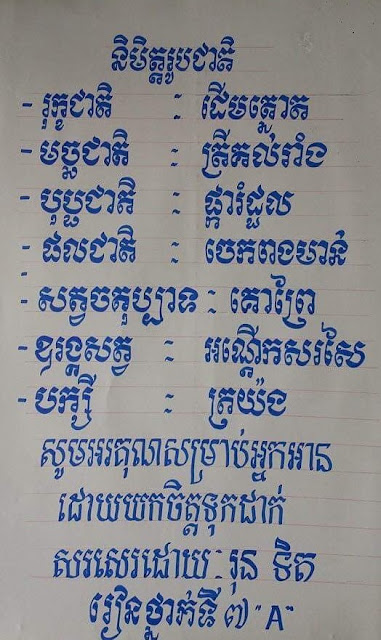 និមិត្តរូបជាតិ
- រុក្ខជាតិ : ដើមត្នោត
- មច្ឆជាតិ : ត្រីគល់រាំង
- បុប្ផជាតិ : ផ្ការំដួល
- ផលជាតិ : ចេកពងមាន់
- សត្វចតុប្បាទ : គោព្រៃ
- ឧរង្គសត្វ : អណ្ដើកសរសៃ
- បក្សី : ត្រយ៉ង
សូមអរគុណសម្រាប់អ្នកអាន
ដោយយកចិត្តទុកដាក់
សរសេរដោយ : រុន ទិត
រៀនថ្នាក់ទី ៧ "A"